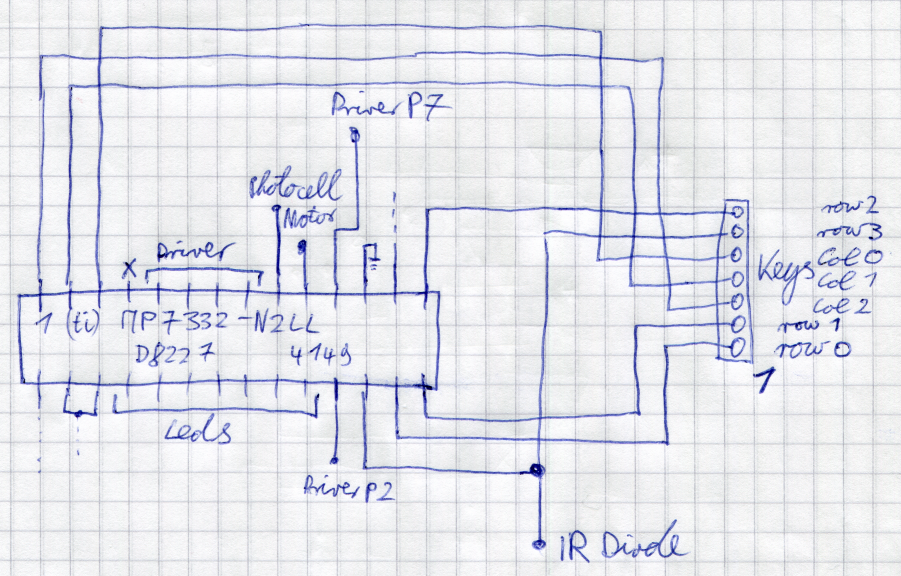 Driver P7
Photocell
Motor
Driver
X
1 (ti) MP7332-N2LL
D8227 4149
Leds
Driver P2
IR Diode
Keys
row 2
row 3
Col 0
Col 1
Col 2
row 1
row 0
1